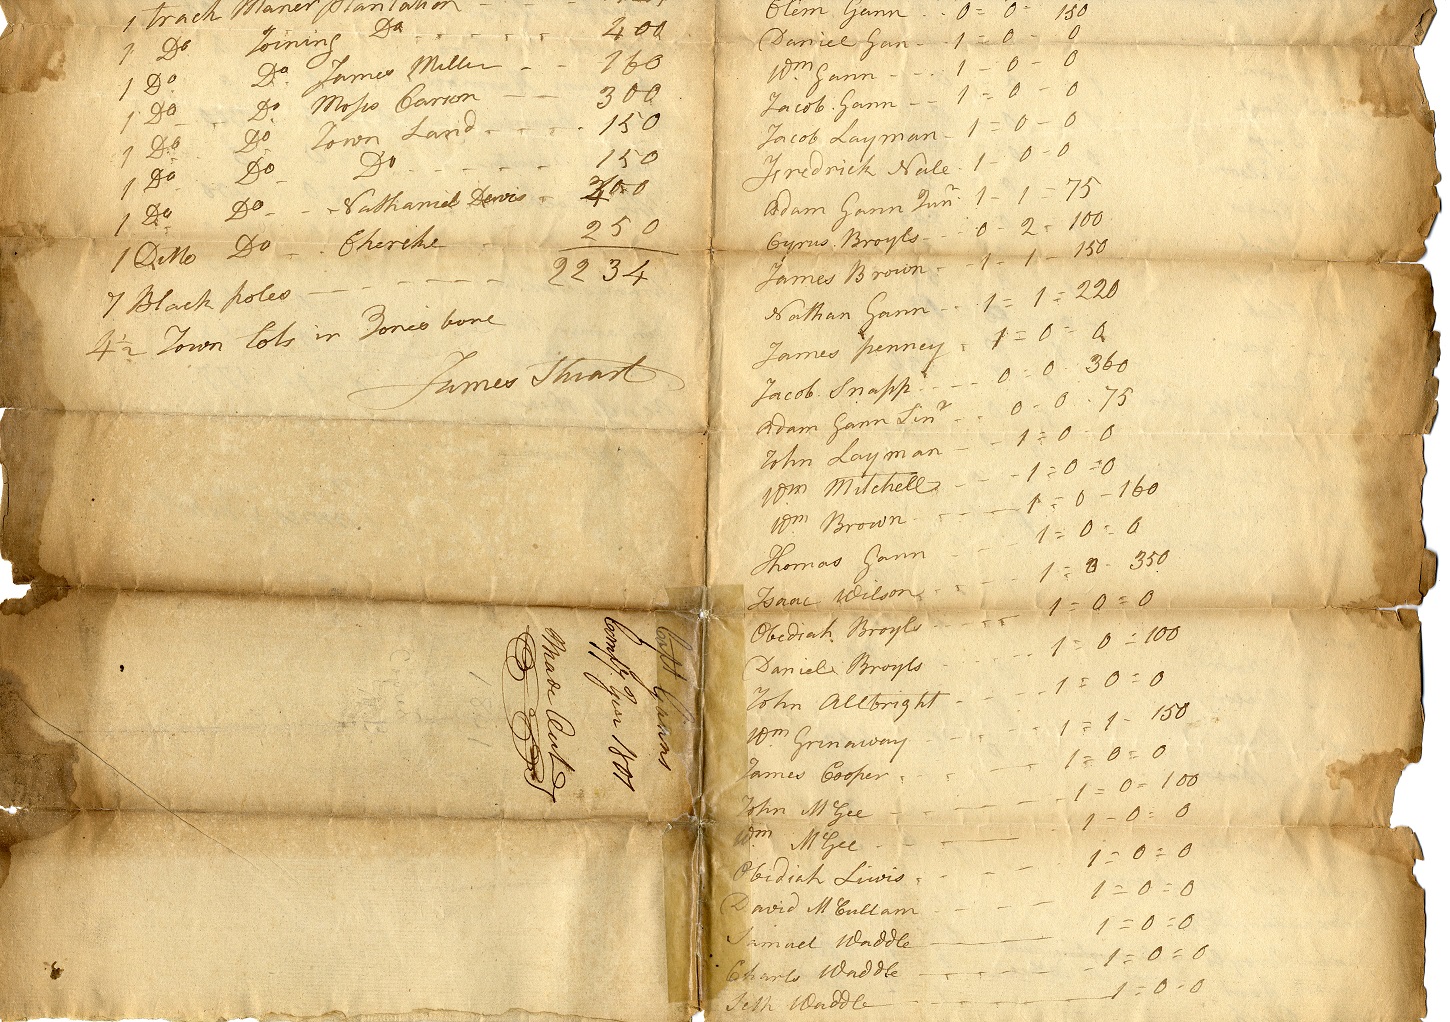 1 track Maner Plantation - - -
1 Do Joining Do . . . . . . 400
1 Do. Do. James Miller - - 160
1 Do. Do. Moses Carson - - 300
1 Do. Do. Town Land . . . . . 150
1 Do - Do - Do . - - - - - 150
1 Do. Do - - - Nathaniel Davis -
1 Ditto Do - . Cheroke - 250
7 Black poles - - - - - - - 2234
4 1/2 Town lots in Jonesbone
James Stuart
Capt Ganns
Compy. for 1801
Made Out
Clem Gann . . 0 = 0 = 150
Daniel Gan - . 1 = 0 - 0
Wm Gann - - . 1 - 0 - 0
Jacob Gann - - 1 = 0 - 0
Jacob Layman - 1 = 0 - 0
Fredrick Nale . 1 - 0 - 0
Adam Gann Junr. 1 - 1 = 75
Cyrus Broyls - - 0 - 2 - 100
James Brown - - 1 - 1 - 150
Nathan Gann - - . 1 = 1 = 220
James penney . 1 = 0 = 0
Jacob Snapp - - - . 0 = 0 . 360
Adam Gann Sinr - - . 0 - 0 . 75
John Layman - - . 1 = 0 - 0
Wm Mitchell - - - 1 = 0 = 0
Wm Brown - - - - 1 = 0 - 160
Thomas Gann - - - . 1 = 0 = 0
Isaac Wilson - - - . 1 = 350
Obediah Broyls - - - 1 = 0 = 0
Daniel Broyls - - - 1 = 0 = 100
John Allbright - - - - 1 = 0 = 0
Wm Grinaway - - - 1 = 1 - 150
James Cooper . - - - 1 = 0 = 0
John McGee - - - - - 1 = 0 = 100
Wm McGee - - - - 1 - 0 = 0
Obediah Liwis . - - - 1 = 0 = 0
David McCullam - - - - 1 = 0 = 0
Samuel Waddle - - - 1 = 0 = 0
Charls Waddle - - - - - 1 = 0 = 0
Seth Waddle - - - - - 1 = 0 = 0